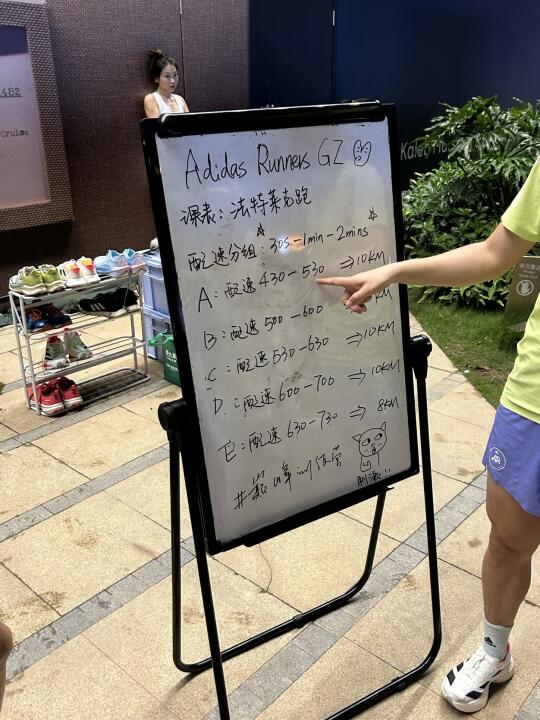 482
Cruise
Adidas Runners GZ
课表：法特莱克跑
配速分组：30s-1min-2mins
A：配速 430-530 ⇒10KM
B：配速 500-600 KM
C：配速 530-630 ⇒10KM
D：配速 600-700 ⇒ 10KM
E：配速 630-730 ⇒ 8KM
#巅峰训练营
刺激!!